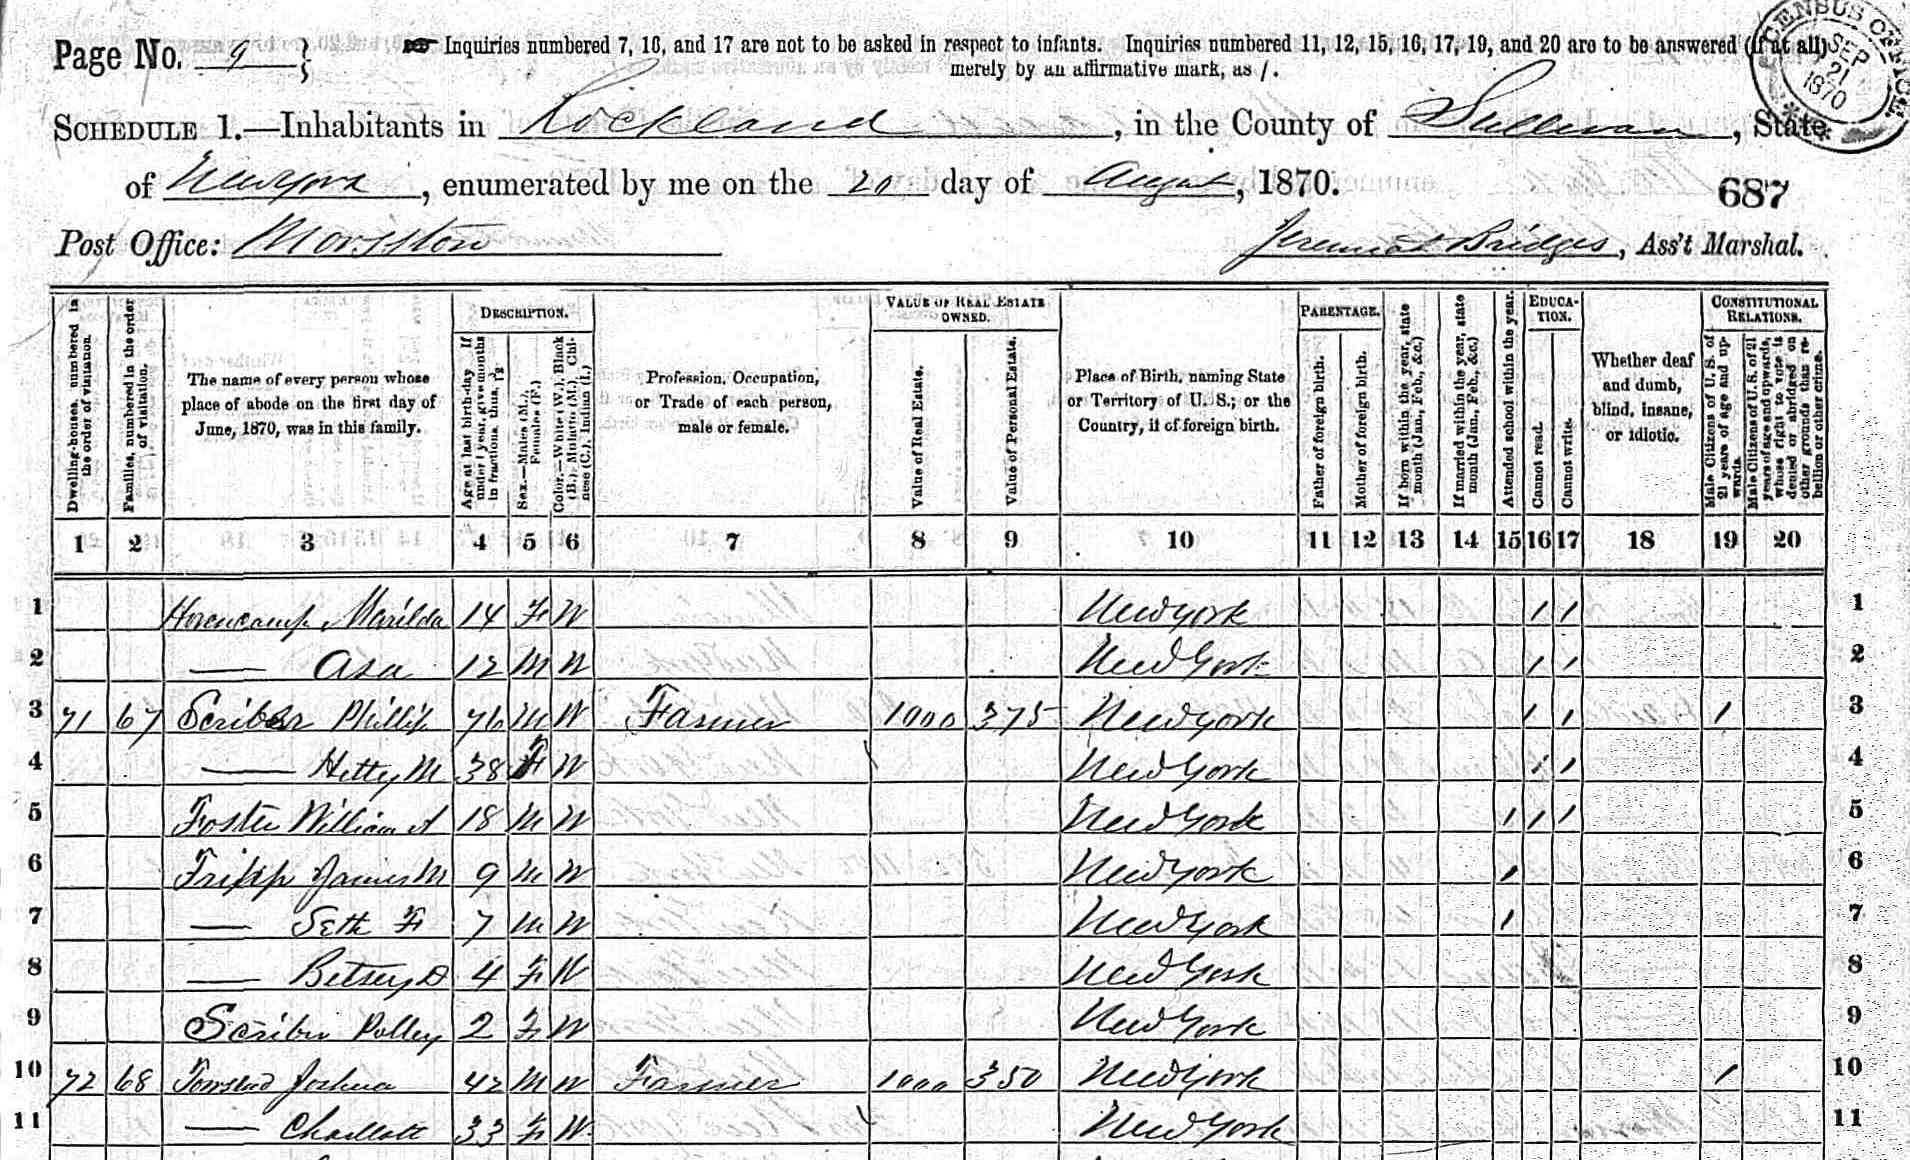 Page No. 9 }
☛ Inquiries numbered 7, 16, and 17 are not to be asked in respect to infants. Inquiries numbered 11, 12, 15, 16, 17, 19, and 20 are to be answered (if at all)
merely by an affirmative mark, as /.
CENSUS OFFICE
SEP
21
1870
SCHEDULE 1.—Inhabitants in Rockland, in the County of Sullivan, State
of New York, enumerated by me on the 20 day of August, 1870.
687
Post Office: Morsston
Jeremiah Bridges, Ass't Marshal.
Dwelling-houses, numbered in the order of visitation.
Families, numbered in the order of visitation.
The name of every person whose place of abode on the first day of June, 1870, was in this family.
DESCRIPTION.
Age at last birth-day. If under 1 year, give months in fractions, thus, 3/12.
Sex.—Males (M.), Females (F.)
Color.—White (W.), Black (B.), Mulatto (M.), Chinese (C.), Indian (I.)
Profession, Occupation, or Trade of each person, male or female.
VALUE OF REAL ESTATE OWNED.
Value of Real Estate.
Value of Personal Estate.
Place of Birth, naming State or Territory of U. S.; or the Country, if of foreign birth.
PARENTAGE.
Father of foreign birth.
Mother of foreign birth.
If born within the year, state month (Jan., Feb., &c.)
If married within the year, state month (Jan., Feb., &c.)
Attended school within the year.
EDUCATION.
Cannot read.
Cannot write.
Whether deaf and dumb, blind, insane, or idiotic.
CONSTITUTIONAL RELATIONS.
Male Citizens of U. S. of 21 years of age and upwards.
Male Citizens of U. S. of 21 years of age and upwards, whose right to vote is denied or abridged on other grounds than rebellion or other crime.
1 2 3 4 5 6 7 8 9 10 11 12 13 14 15 16 17 18 19 20
1 Horencamp, Marilda 14 F W New York / / 1
2 — Asa 12 M W New York / / 2
3 71 67 Scriber Phillip 76 M W Farmer 1000 375 New York / / / 3
4 — Hetty M 38 F W New York / / 4
5 Foster William A 18 M W New York / / / 5
6 Tripp James M 9 M W New York / 6
7 — Seth F 7 M W New York / 7
8 — Betsey D 4 F W New York 8
9 Scriber Polley 2 F W New York 9
10 72 68 Townsend Joshua 42 M W Farmer 1000 350 New York / 10
11 — Charlott 33 F W New York 11